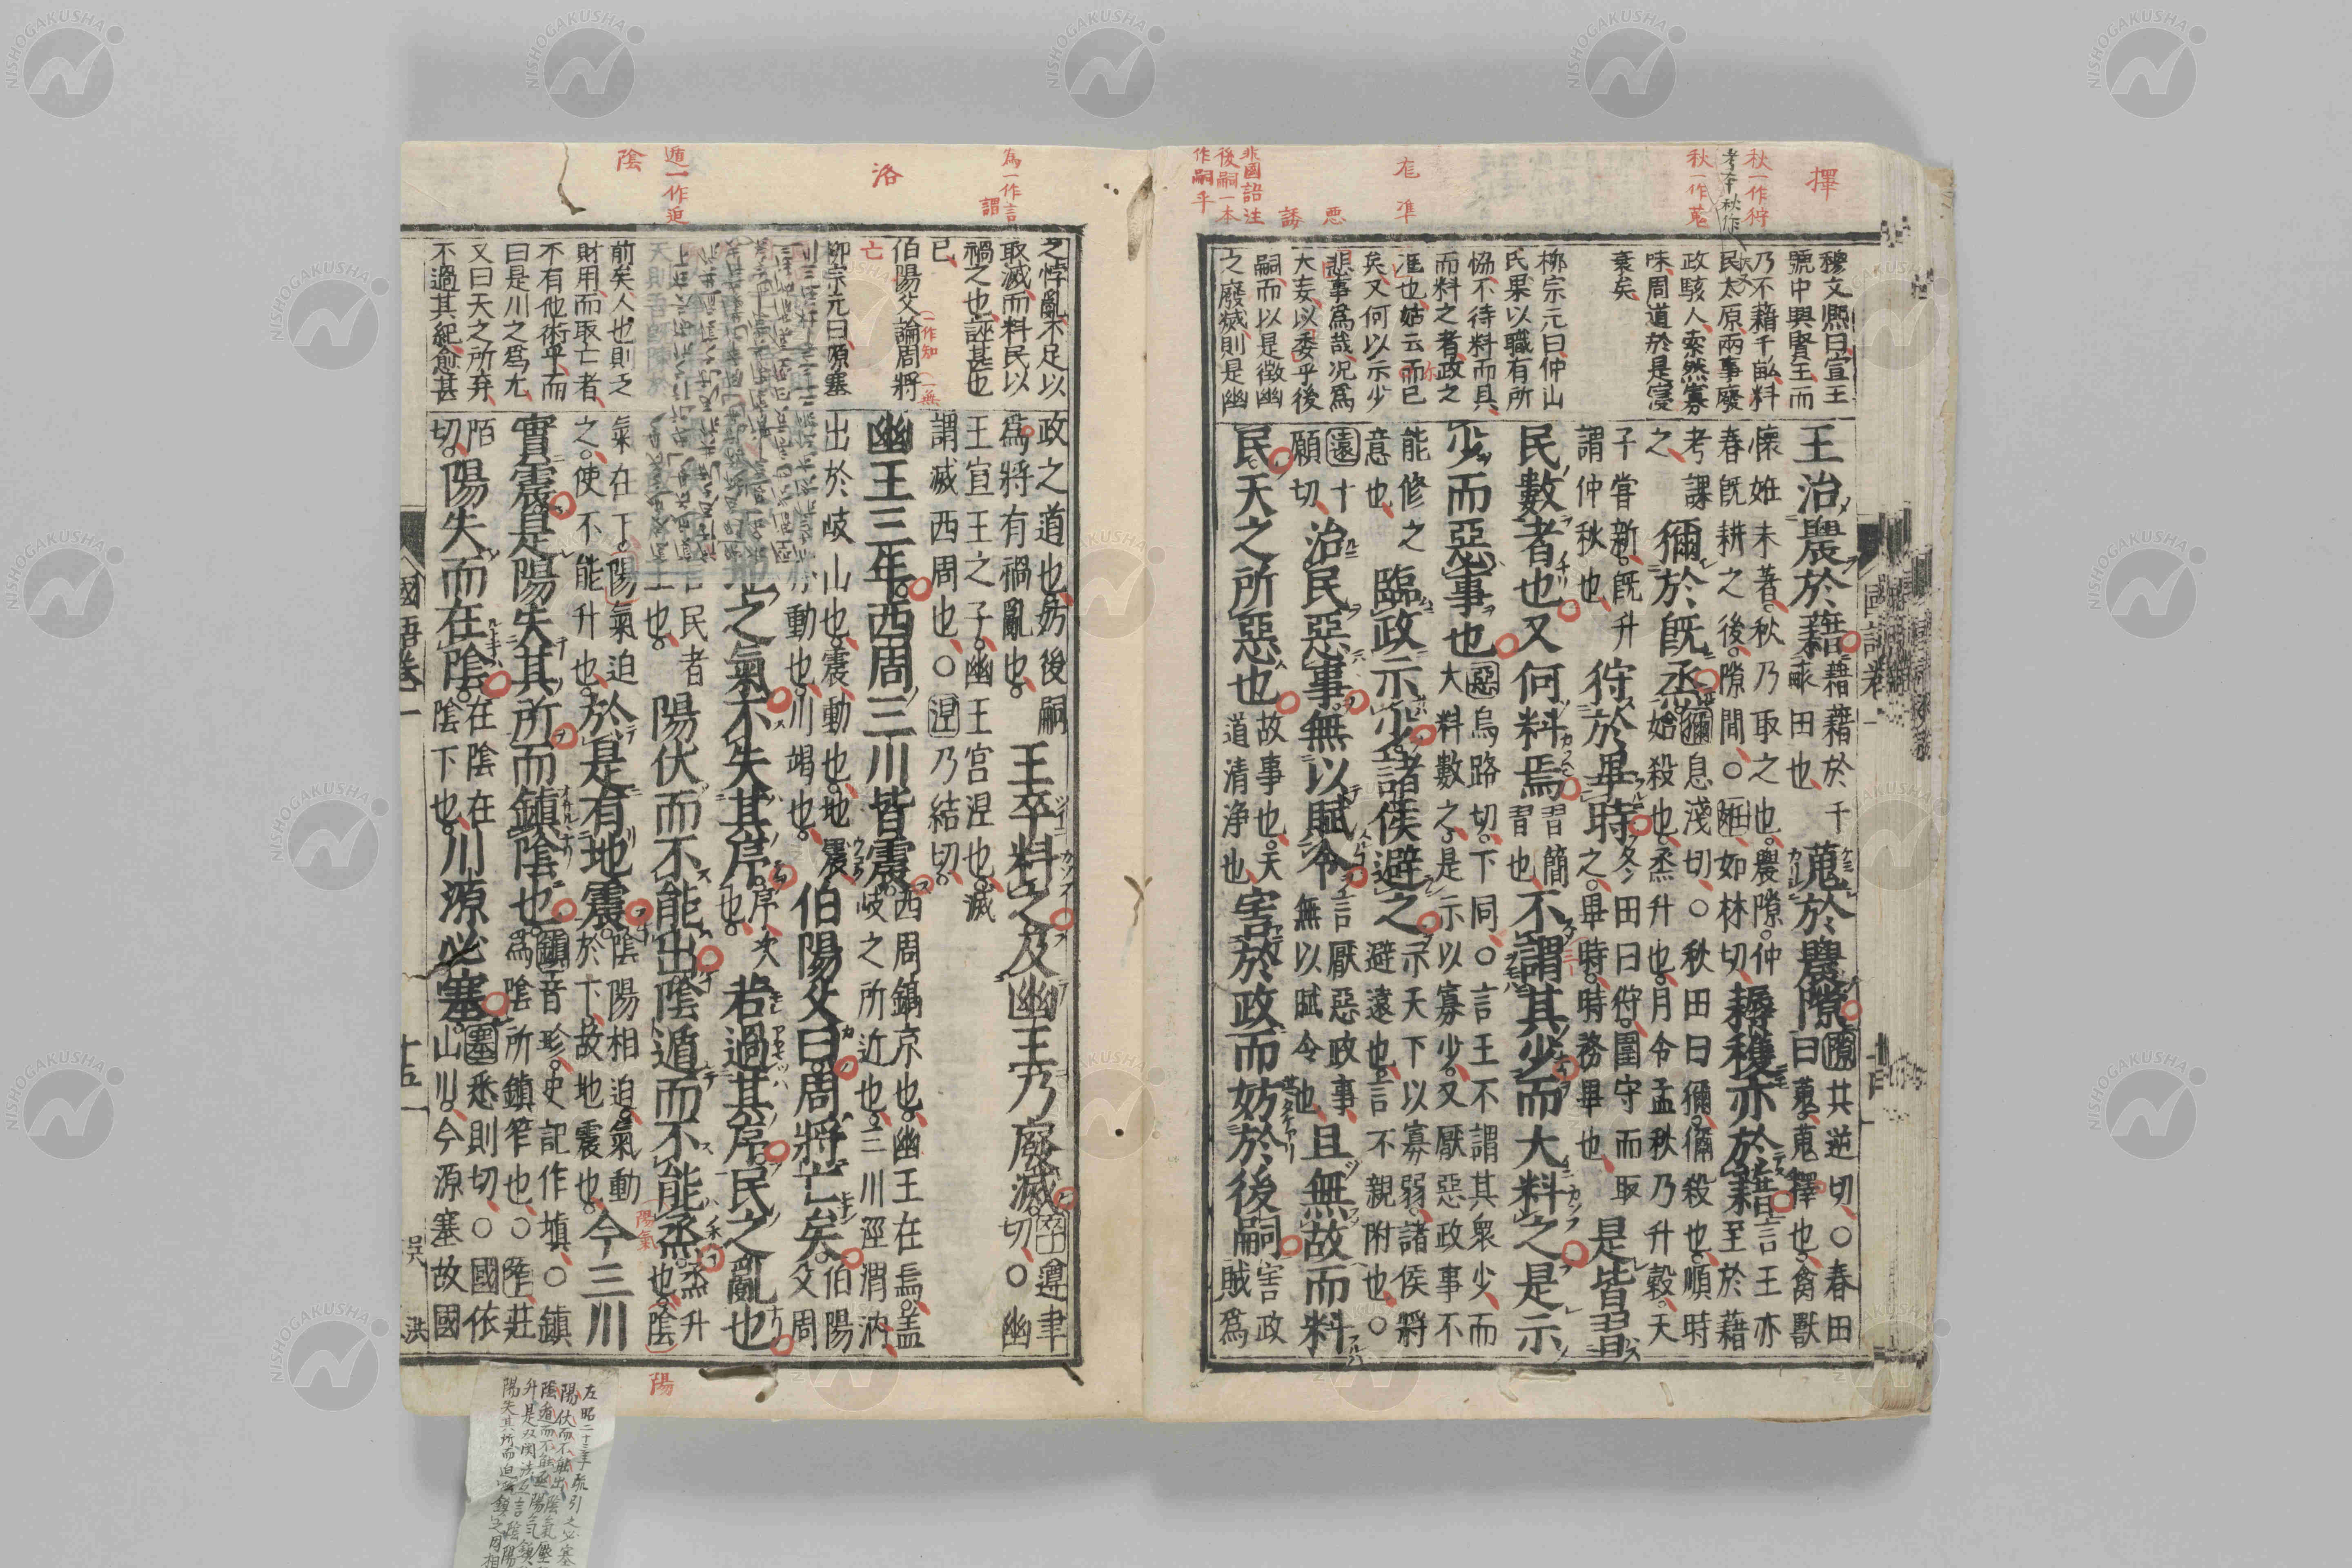 擇
秋一作狩
秋一作蒐
悪
誘
非國語注
後嗣一本
作嗣乎
穆文熈曰宣王
號中興賢主而
乃不藉千畝料
民太原兩事廢
政駭人索然寡
味周道於是寖
衰矣
柳宗元曰仲山
氏果以職有所
恊不待料而具
而料之者政之
尨也姑云而已
矣又何以示少
悪事爲哉况爲
大妄以委乎後
嗣而以是徴幽
之廢滅則是幽
王治農於藉藉藉於千
畝田也蒐於農隙隙共逆切○春田
曰蒐蒐擇也禽獸
懷妊未著秋乃取之也農隙仲
春旣耕之後隙間○妊如林切耨穫亦於藉言王亦
至於藉
考課
之獮於旣烝獮息淺切○秋田曰獮獮殺也順時
始殺也烝升也月令孟秋乃升穀天
子嘗新旣升
謂仲秋也狩於畢時冬田曰狩圍守而取
之畢時時務畢也是皆習
民數者也又何料焉習簡
習也不謂其少而大料之是示
少而惡事也惡烏路切下同○言王不謂其衆少而
大料數之是示以寡少又厭惡政事不
能修之
意也臨政示少諸侯避之示天下以寡弱諸侯將
避遠也言不親附也○
遠十
願切治民惡事無以賦令言厭惡政事
無以賦令也且無故而料
民天之所惡也故事也天
道清浄也害於政而妨於後嗣害政
賊爲
國語卷一
為一作言
謂
洛
遁一作迫
陰
之悖亂不足以
取滅而料民以
禍之也誣甚也
已
伯陽父論周將
亡
一作知
一無
柳宗元曰源塞
前矣人也則之
財用而取亡者
不有他術乎而
曰是川之爲尤
又曰天之所弃
不過其紀愈甚
政之道也妨後嗣
爲將有禍亂也王卒料之及幽王乃廢滅卒遵聿
切○幽
王宣王之子幽王宮涅也滅
謂滅西周也○涅乃結切
幽王三年西周三川皆震西周鎬京也幽王在焉盖
岐之所近也三川涇渭汭
出於岐山也震動也地震
動也川竭也伯陽父曰周將亡矣伯陽
父周
地之氣不失其序序次
也若過其序民之亂也
民者
也陽伏而不能出陰遁而不能烝烝升
也陰
陽氣
氣在下陽氣迫
之使不能升也於是有地震陰陽相迫氣動
於下故地震也今三川
實震是陽失其所而鎮陰也鎮音珍史記作塡○鎮
爲陰所鎮笮也○笮莊
陌
切陽失而在陰在陰在
陰下也川源必塞塞悉則切○國依
山川今源塞故國
國語卷一
十五
吴
洪
陽
左昭二十三年疏引之必塞
陽伏而不能出陰氣壓